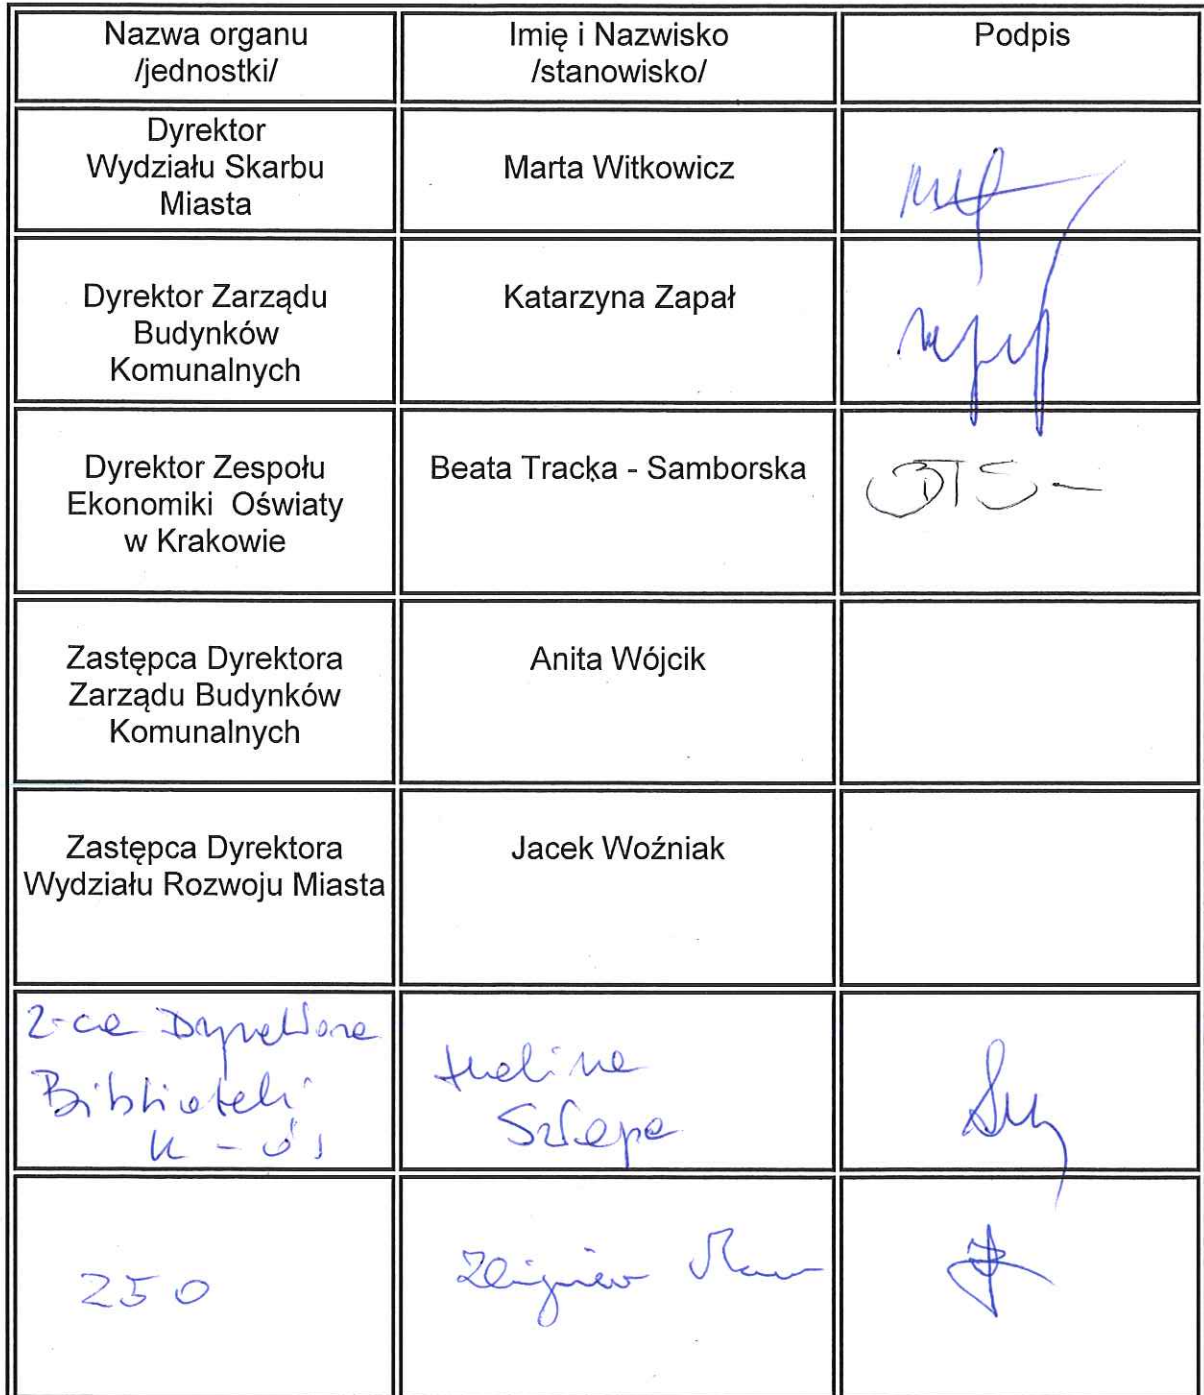 Nazwa organu
/jednostki/
Imię i Nazwisko
/stanowisko/
Podpis
Dyrektor
Wydziału Skarbu
Miasta
Marta Witkowicz
Dyrektor Zarządu
Budynków
Komunalnych
Katarzyna Zapał
Dyrektor Zespołu
Ekonomiki Oświaty
w Krakowie
Beata Tracka - Samborska
BTS -
Zastępca Dyrektora
Zarządu Budynków
Komunalnych
Anita Wójcik
Zastępca Dyrektora
Wydziału Rozwoju Miasta
Jacek Woźniak
Z-ca Dyrektora
Biblioteki
Halina
Zbigniew